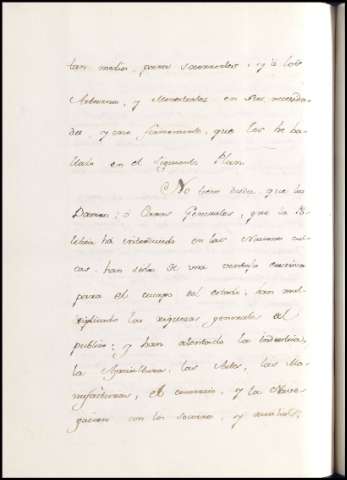 tan medio para socorrerlos, y à los
Artesanos, y Menestrales en sus necesida-
des, y creo firmemente, que los he ha-
llado en el siguiente Plan.
No tiene duda, que los
Bancos, ò Casas Generales, que la Po-
litica ha introducido en las Naciones cul-
tas han sido de una ventaja excesiva
para el cuerpo del estado, han mul-
tiplicado las riquezas generales al
publico; y han alentado la industria,
la Agricultura, las Artes, las Ma-
nufacturas, el comercio, y la Nave-
gacion con los socorros, y auxilios,